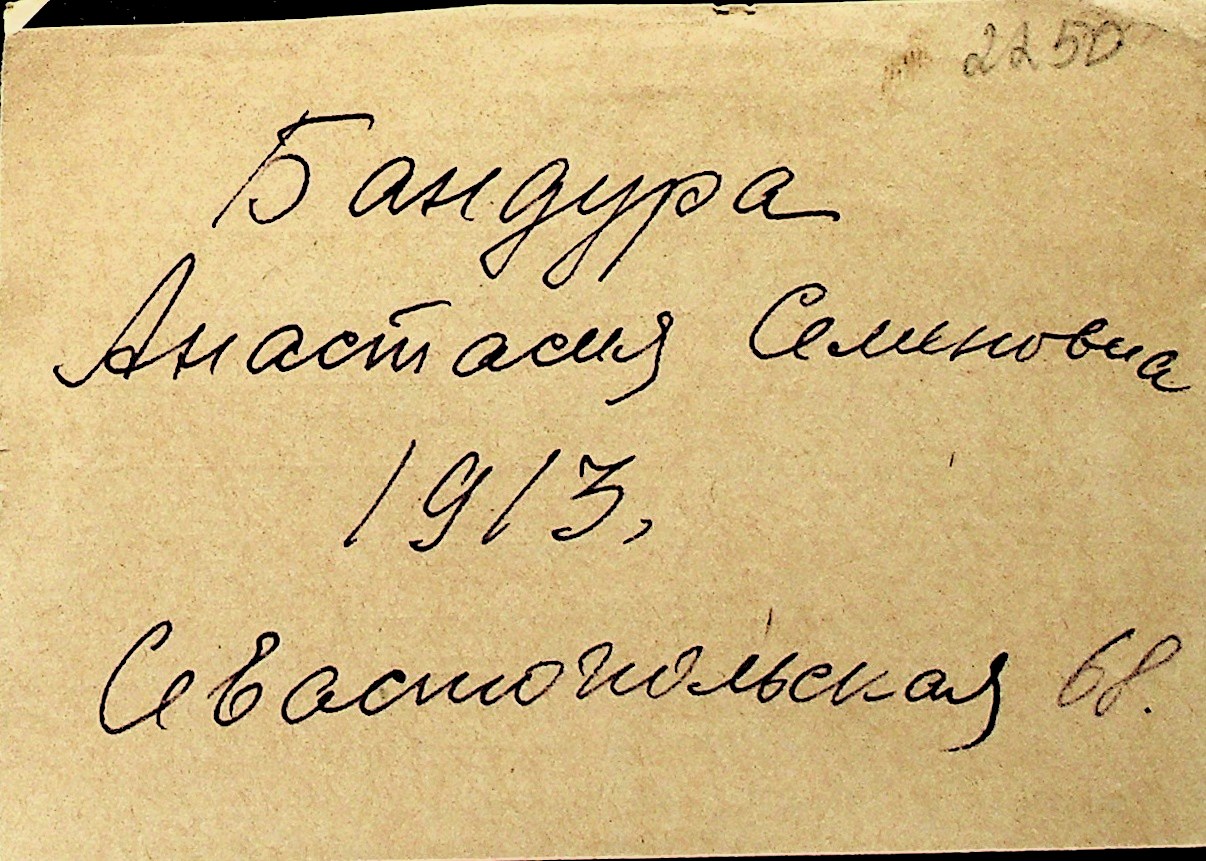 2250
Бандура
Анастасия Семеновна
1913,
Севастопольская 68.